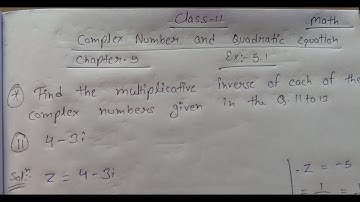 Class-11 Math
Complex Number and Quadratic equation
Chapter-5 Ex:-5.1
* Find the multiplicative inverse of each of the
complex numbers given in the Q. 11 to 13
11 4-3i
Sol:- z = 4-3i
z = -5
= 1